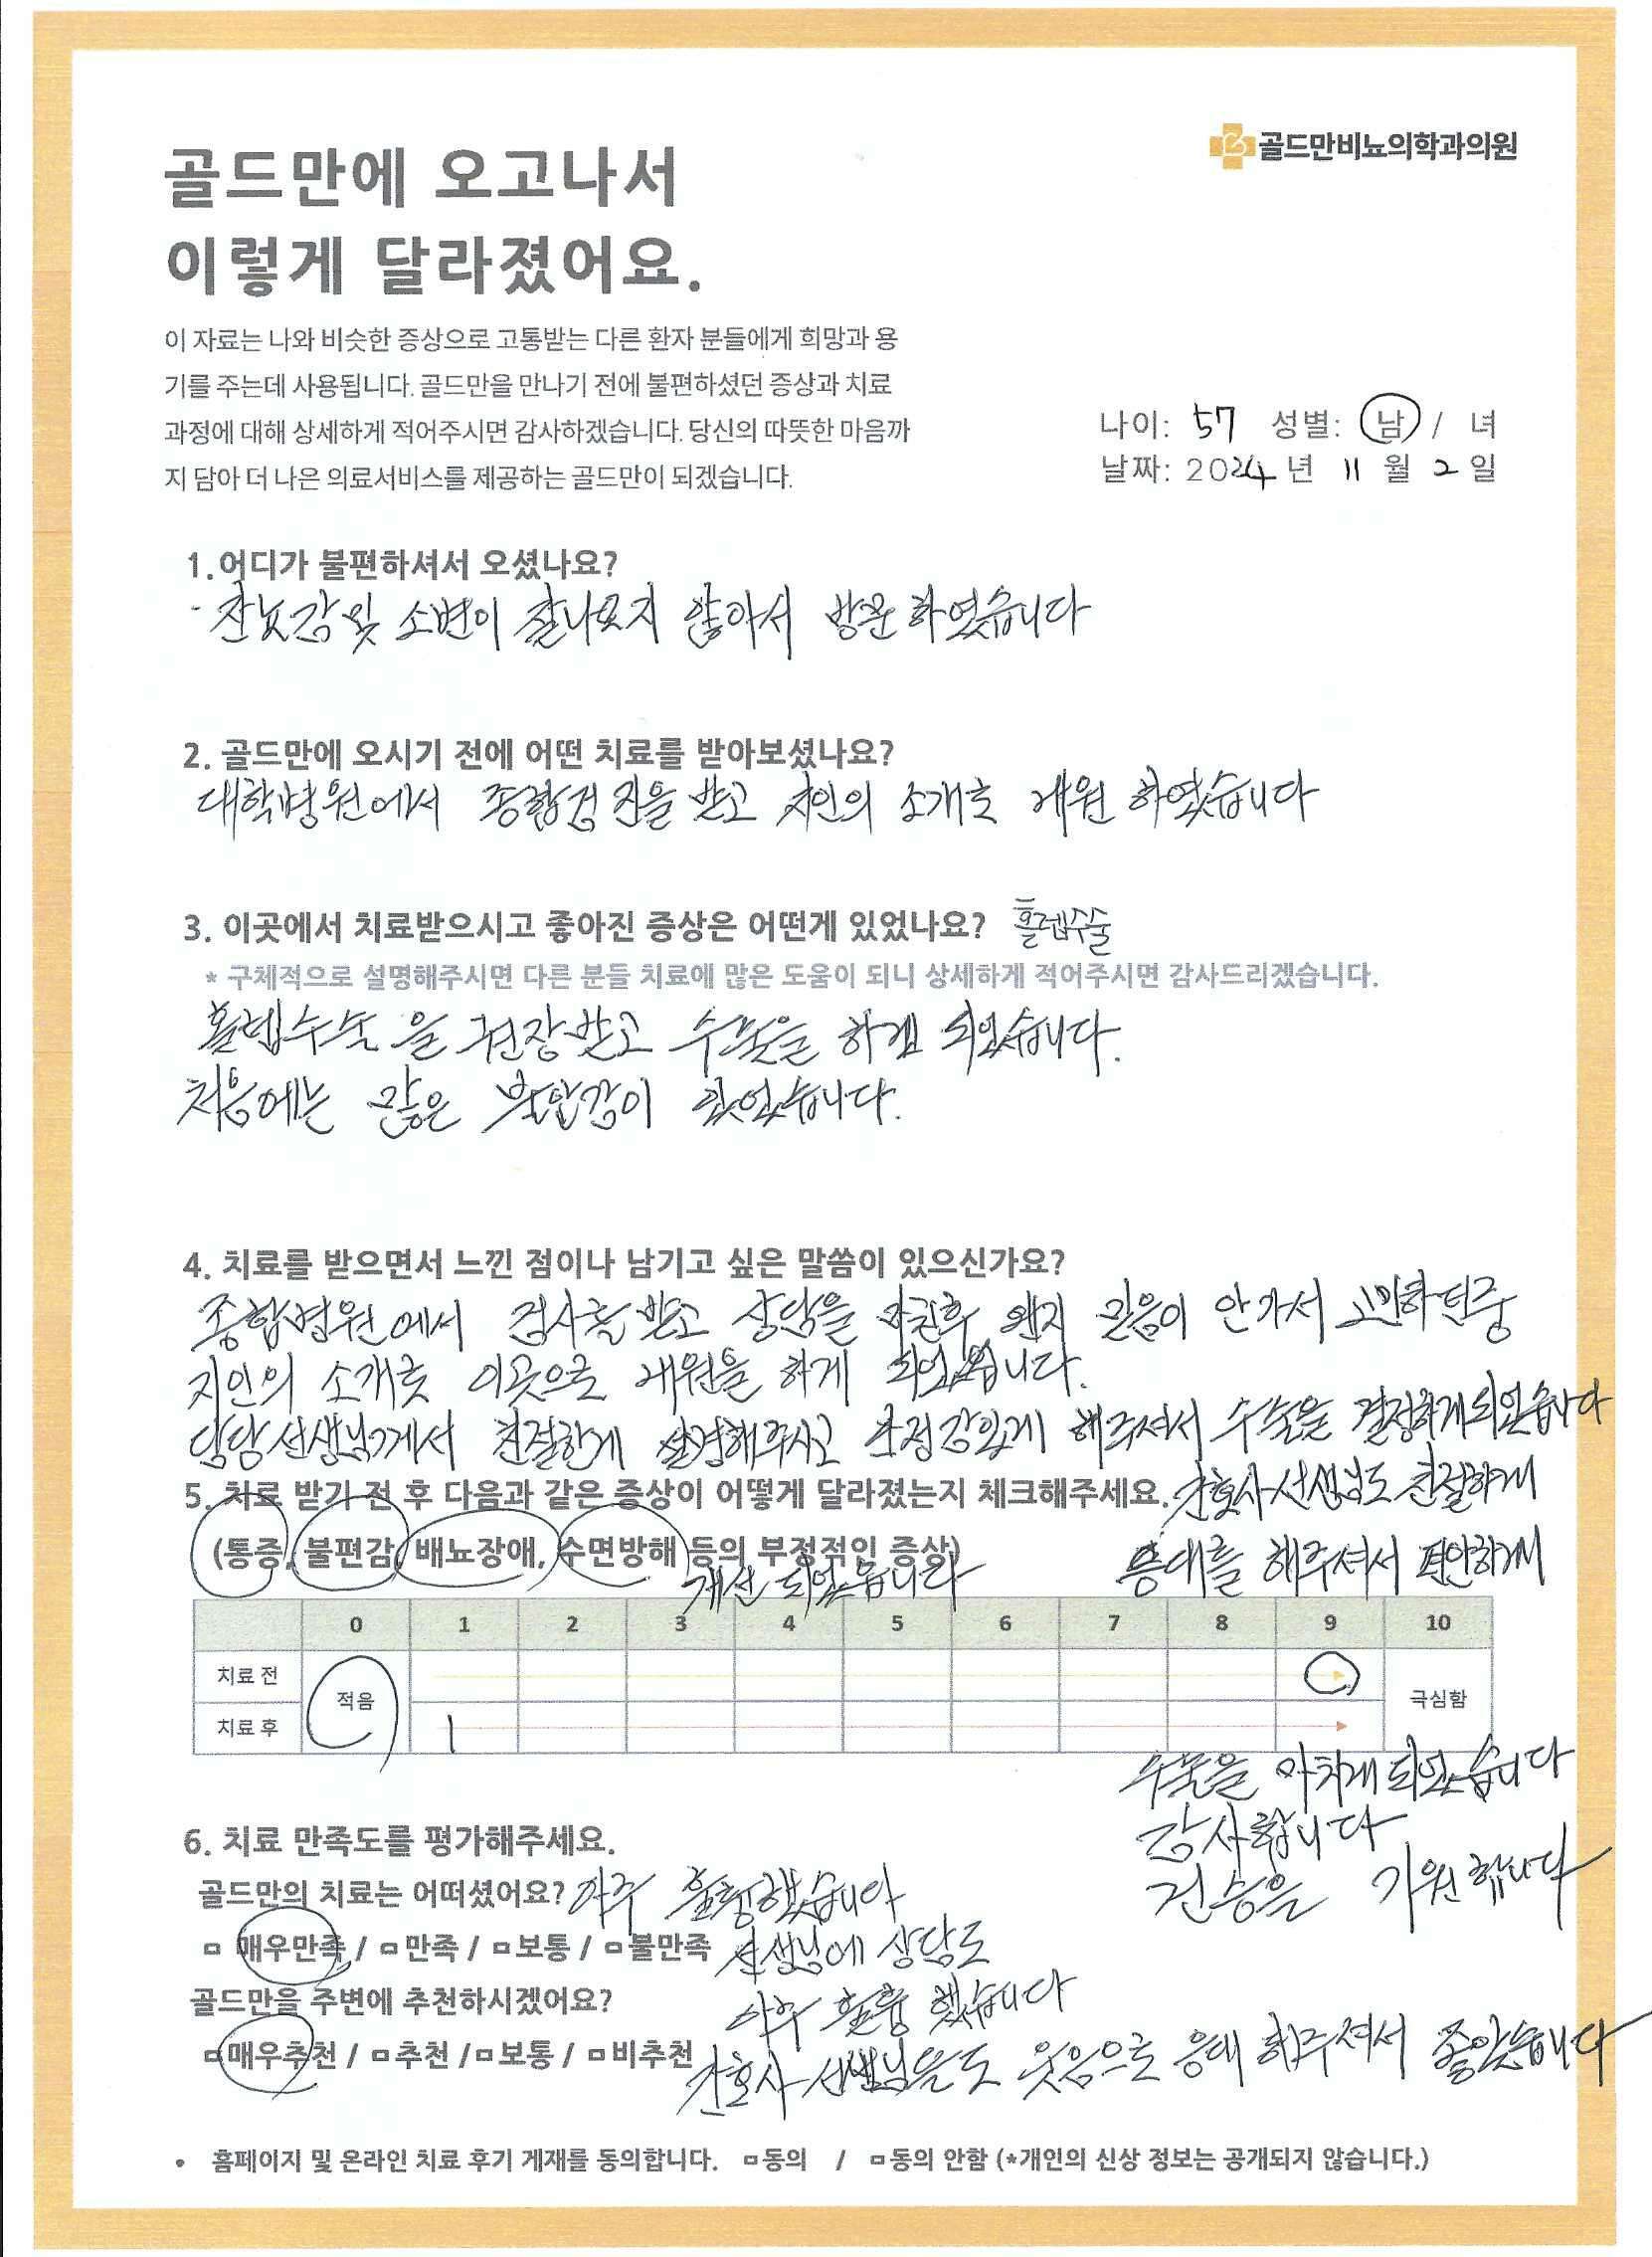 골드만비뇨의학과의원
골드만에 오고나서
이렇게 달라졌어요.
이 자료는 나와 비슷한 증상으로 고통받는 다른 환자 분들에게 희망과 용
기를 주는데 사용됩니다. 골드만을 만나기 전에 불편하셨던 증상과 치료
과정에 대해 상세하게 적어주시면 감사하겠습니다. 당신의 따뜻한 마음까
지 담아 더 나은 의료서비스를 제공하는 골드만이 되겠습니다.
나이: 57 성별: 남 / 녀
날짜: 2024 년 11 월 2 일
1. 어디가 불편하셔서 오셨나요?
- 잔뇨감 및 소변이 잘나오지 않아서 방문 하였습니다
2. 골드만에 오시기 전에 어떤 치료를 받아보셨나요?
대학병원에서 종합검진을 받고 지인의 소개로 내원 하였습니다
3. 이곳에서 치료받으시고 좋아진 증상은 어떤게 있었나요? 홀렙수술
* 구체적으로 설명해주시면 다른 분들 치료에 많은 도움이 되니 상세하게 적어주시면 감사드리겠습니다.
홀렙수술을 권장받고 수술을 하게 되었습니다.
처음에는 많은 부담감이 있었습니다.
4. 치료를 받으면서 느낀 점이나 남기고 싶은 말씀이 있으신가요?
종합병원에서 검사를 받고 상담을 마친후 왠지 믿음이 안가서 고민하던중
지인의 소개로 이곳으로 내원을 하게 되었습니다.
담당선생님께서 친절하게 설명해주시고 안정감있게 해주셔서 수술을 결정하게되었습니다
5. 치료 받기 전 후 다음과 같은 증상이 어떻게 달라졌는지 체크해주세요. 간호사선생님도 친절하게
(통증, 불편감, 배뇨장애, 수면방해 등의 부정적인 증상) 응대를 해주셔서 편안하게
개선 되었습니다
0 1 2 3 4 5 6 7 8 9 10
치료 전
적음
극심함
치료 후
수술을 마치게 되었습니다
감사합니다
건승을 기원합니다
6. 치료 만족도를 평가해주세요.
골드만의 치료는 어떠셨어요? 아주 훌륭했습니다
ㅁ 매우만족 / ㅁ만족 / ㅁ보통 / ㅁ불만족 선생님에 상담도
골드만을 주변에 추천하시겠어요? 아주 훌륭 했습니다
ㅁ매우추천 / ㅁ추천 /ㅁ보통 / ㅁ비추천 간호사 선생님들도 웃음으로 응대 해주셔서 좋았습니다
• 홈페이지 및 온라인 치료 후기 게재를 동의합니다. ㅁ동의 / ㅁ동의 안함 (*개인의 신상 정보는 공개되지 않습니다.)